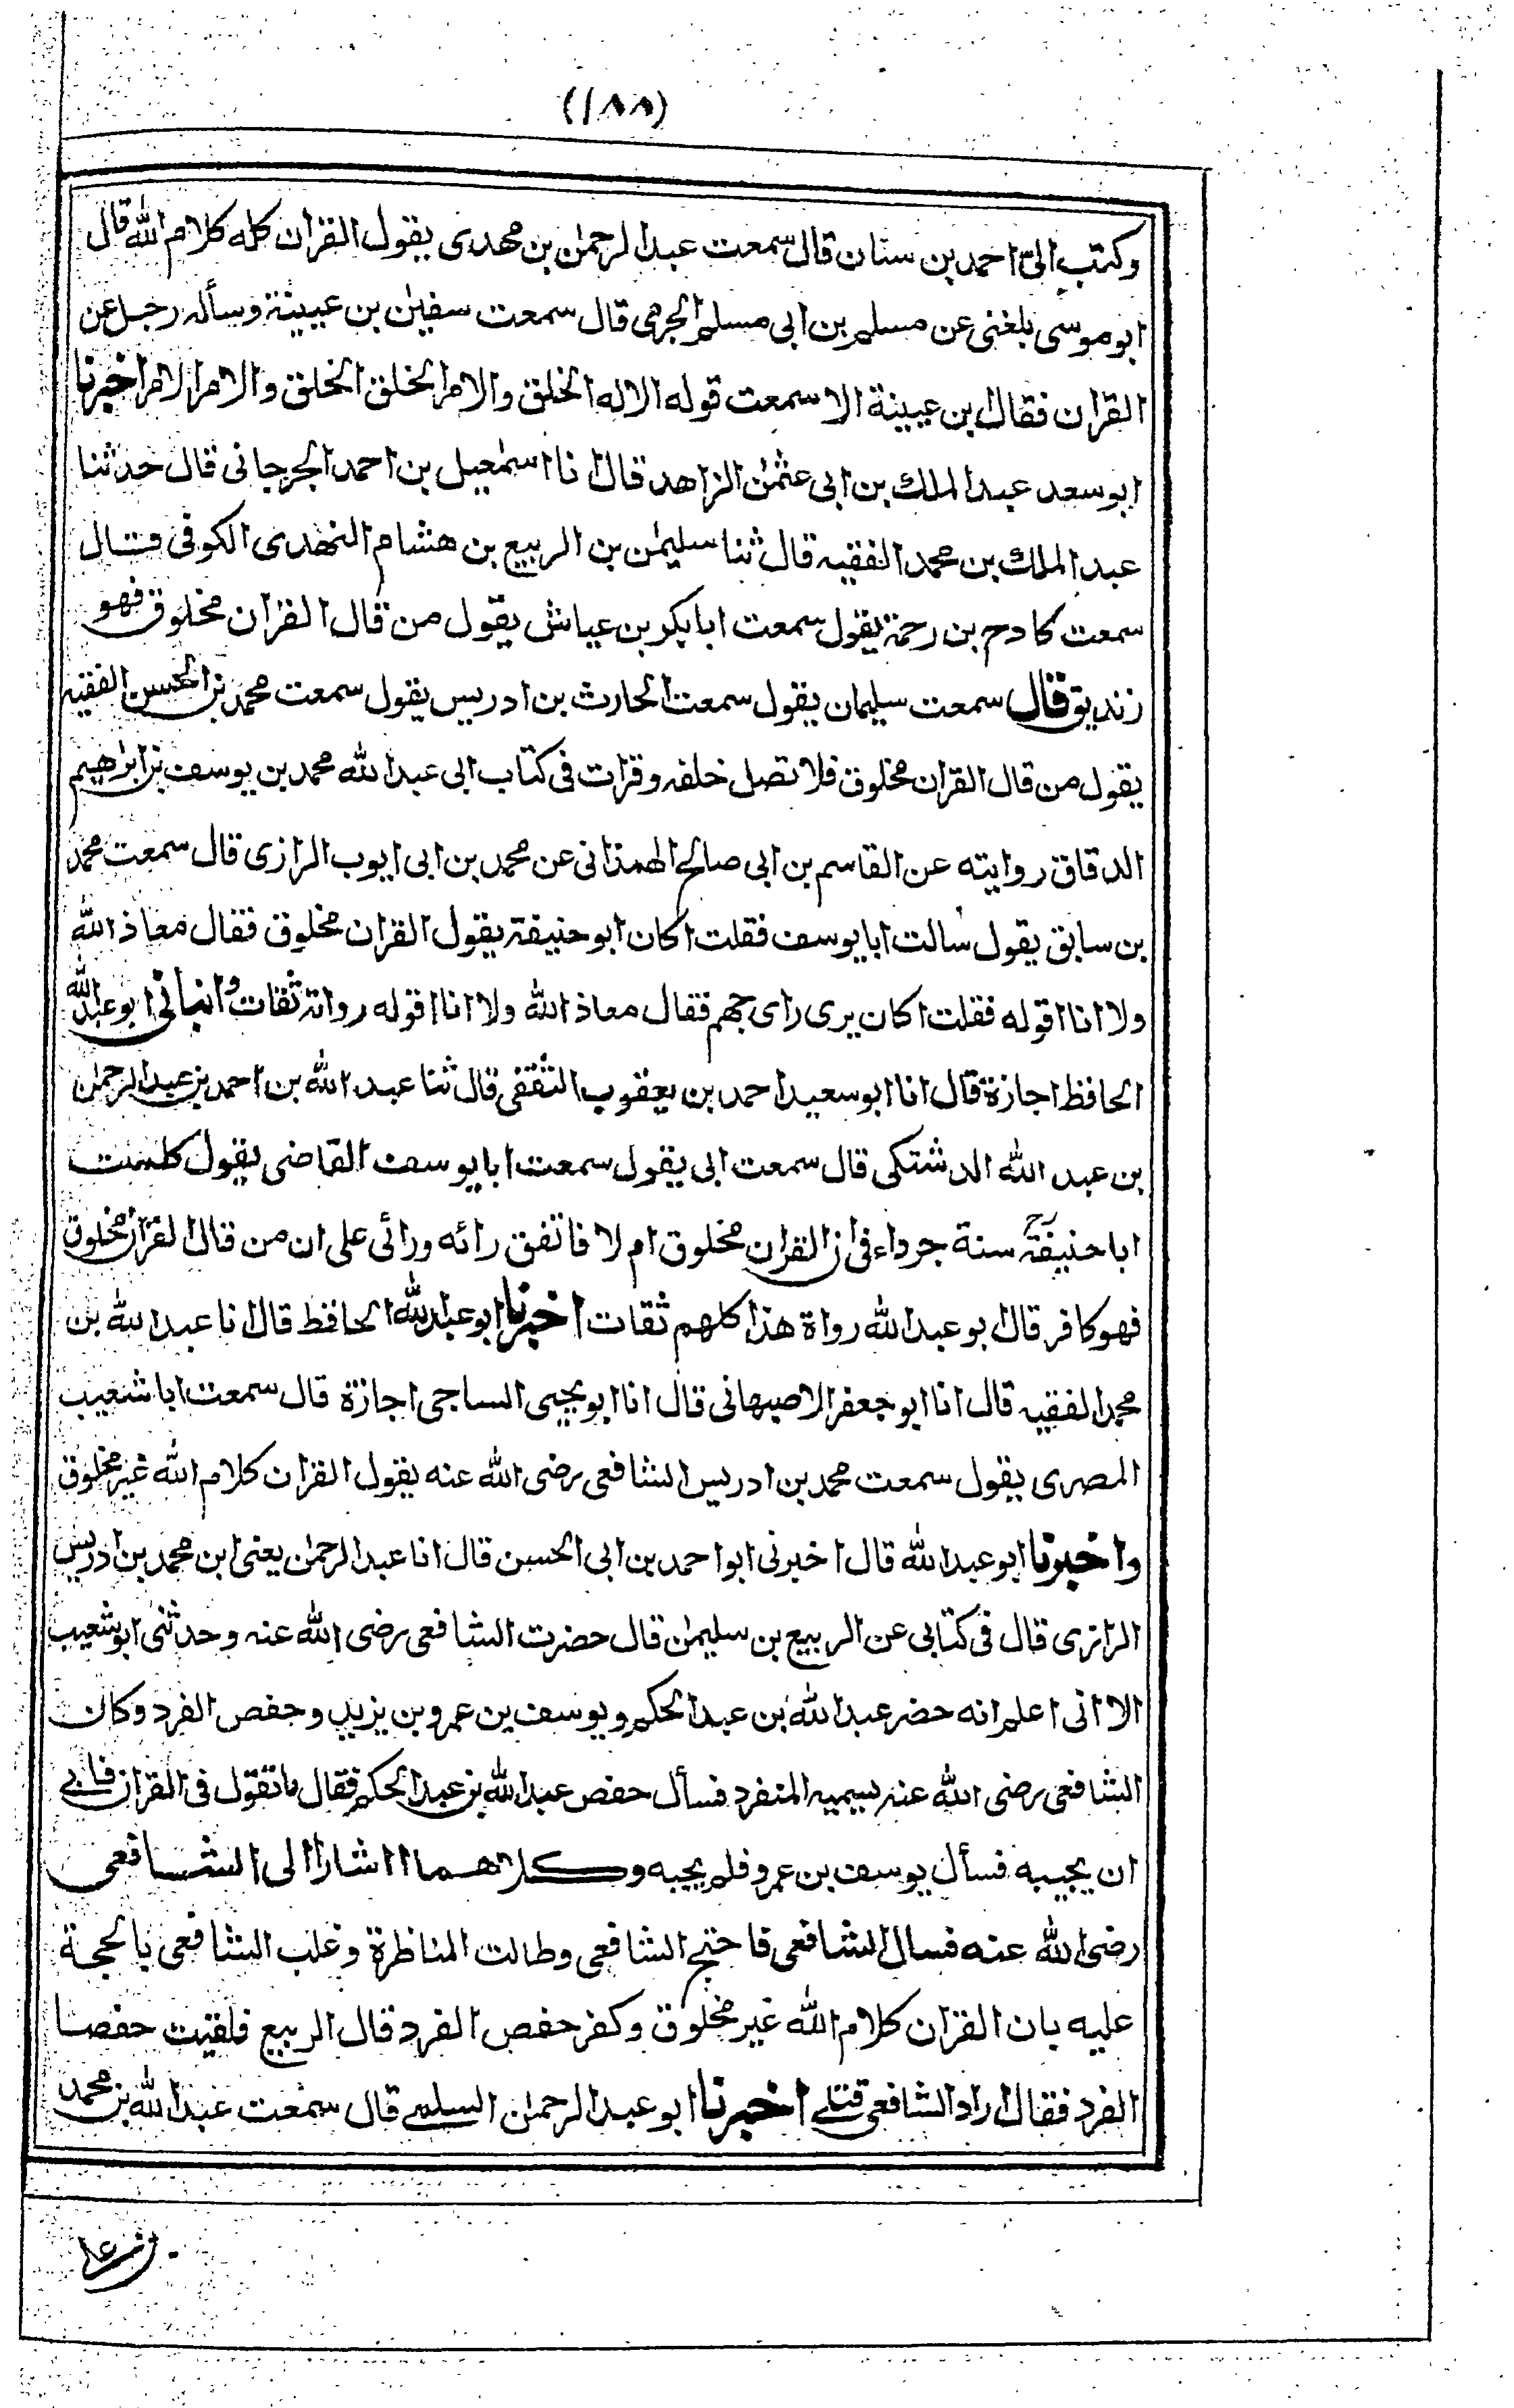 (١٨٨)
وكتب الىّ احمد بن سنان قال سمعت عبد الرحمٰن بن مهدى يقول القراٰن كله كلام الله قال
ابو موسى بلغنى عن مسلم بن ابى مسلم الجرمى قال سمعت سفيٰن بن عيينة وسأله رجل عن
القراٰن فقال ابن عيينة الا سمعت قوله الا له الخلق والامر الخلق الخلق والامر الامر اخبرنا
ابو سعد عبد الملك بن ابى عثمٰن الزاهد قال انا اسمٰعيل بن احمد الجرجانى قال حدثنا
عبد الملك بن محمد الفقيه قال ثنا سليمٰن بن الربيع بن هشام النهدى الكوفى قال
سمعت كادح بن رحمة يقول سمعت ابا بكر بن عياش يقول من قال القراٰن مخلوق فهو
زنديق قال سمعت سليمان يقول سمعت الحارث بن ادريس يقول سمعت محمد بن الحسن الفقيه
يقول من قال القراٰن مخلوق فلا تصل خلفه وقرات فى كتاب ابى عبد الله محمد بن يوسف بن ابراهيم
الدقاق روايته عن القاسم بن ابى صالح الهمذانى عن محمد بن ابى ايوب الرازى قال سمعت محمد
بن سابق يقول سالت ابا يوسف فقلت اكان ابو حنيفة يقول القراٰن مخلوق فقال معاذ الله
ولا انا اقوله فقلت اكان يرى راى جهم فقال معاذ الله ولا انا اقوله رواته ثقات وانبانى ابو عبد الله
الحافظ اجازة قال انا ابو سعيد احمد بن يعقوب الثقفى قال ثنا عبد الله بن احمد بن عبد الرحمٰن
بن عبد الله الدشتكى قال سمعت ابى يقول سمعت ابا يوسف القاضى يقول كلمت
ابا حنيفةؒ سنة جرداء فى ان القراٰن مخلوق ام لا فاتفق رائه ورائى على ان من قال القراٰن مخلوق
فهو كافر قال ابو عبد الله رواة هذا كلهم ثقات اخبرنا ابو عبد الله الحافظ قال انا عبد الله بن
محمد الفقيه قال انا ابو جعفر الاصبهانى قال انا ابو يحيى الساجى اجازة قال سمعت ابا شعيب
المصرى يقول سمعت محمد بن ادريس الشافعى رضى الله عنه يقول القراٰن كلام الله غير مخلوق
واخبرنا ابو عبد الله قال اخبرنى ابو احمد بن ابى الحسن قال انا عبد الرحمٰن يعنى ابن محمد بن ادريس
الرازى قال فى كتابى عن الربيع بن سليمٰن قال حضرت الشافعى رضى الله عنه وحدثنى ابو شعيب
الا انى اعلم انه حضر عبد الله بن عبد الحكم ويوسف بن عمرو بن يزيد وحفص الفرد وكان
الشافعى رضى الله عنه يسميه المنفرد فسأل حفص عبد الله بن عبد الحكم فقال ما تقول فى القراٰن فابى
ان يجيبه فسأل يوسف بن عمرو فلم يجبه وكلاهما اشارا الى الشافعى
رضى الله عنه فسال الشافعى فاحتج الشافعى وطالت المناظرة وغلب الشافعى بالحجة
عليه بان القراٰن كلام الله غير مخلوق وكفر حفص الفرد قال الربيع فلقيت حفصا
الفرد فقال اراد الشافعى قتلى اخبرنا ابو عبد الرحمٰن السلمى قال سمعت عبد الله بن محمد